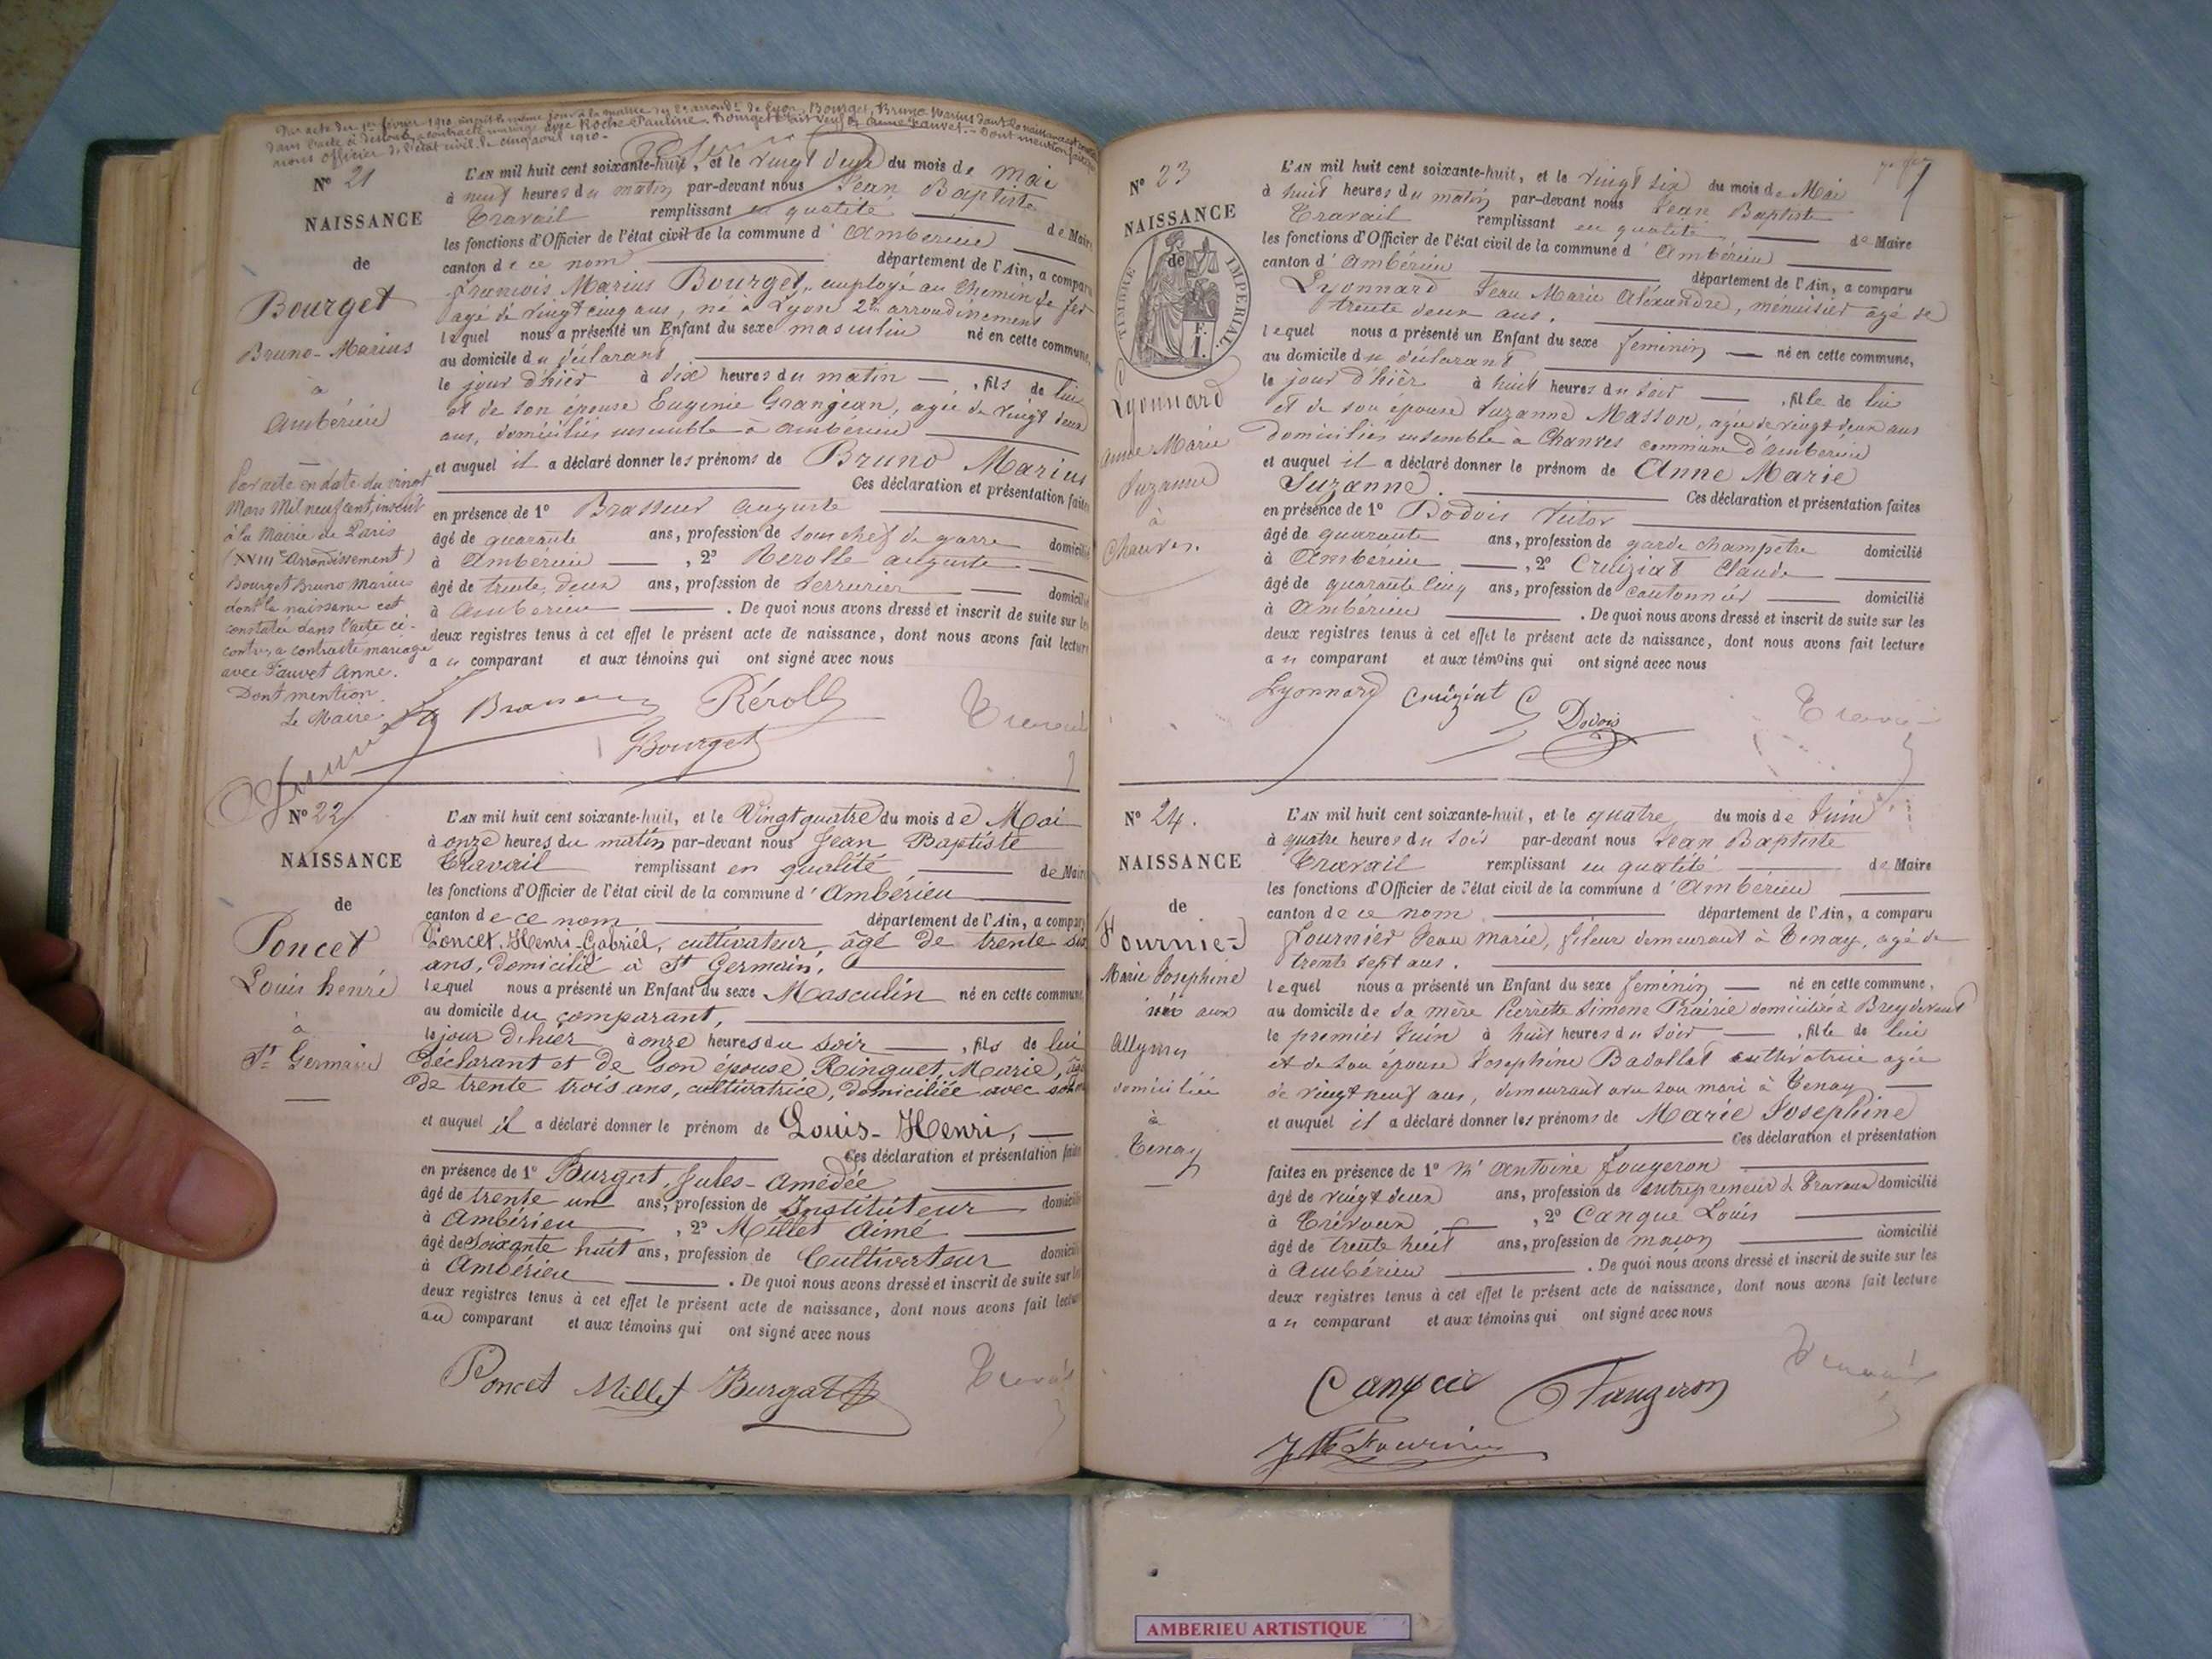 Par acte du 1er février 1910 inscrit le même jour à la mairie du 2e arrondt de Lyon, Bourget, Bruno Marius dont la naissance est constatée
dans l'acte ci-dessous a contracté mariage avec Roche Pauline. Bourget était veuf de Anne Fauvet. - Dont mention faite par
nous Officier de l'état civil le cinq avril 1910 -
N° 21
NAISSANCE
de
Bourget
Bruno-Marius
à
Ambérieu
Par acte en date du vingt
Mars Mil neuf cent, inscrit
à la Mairie de Paris
(XVIIIe Arrondissement)
Bourget Bruno Marius
dont la naissance est
constatée dans l'acte ci-
contre, a contracté mariage
avec Fauvet Anne.
Dont mention.
Le Maire
L'AN mil huit cent soixante-huit, et le vingt deux du mois de mai
à neuf heures du matin par-devant nous Jean Baptiste
Travail remplissant en qualité de Maire
les fonctions d'Officier de l'état civil de la commune d'Ambérieu
canton de ce nom département de l'Ain, a comparu
François Marius Bourget, employé au Chemin de fer
agé de vingt cinq ans, né à Lyon 2e arrondissement
lequel nous a présenté un Enfant du sexe masculin né en cette commune,
au domicile du déclarant
le jour d'hier à dix heures du matin, fils de lui
et de son épouse Eugénie Grangean, agée de vingt deux
ans, domiciliés ensemble à Ambérieu
et auquel il a déclaré donner les prénoms de Bruno Marius
Ces déclaration et présentation faites
en présence de 1° Brasseur Auguste
âgé de quarante ans, profession de sous chef de garre domicilié
à Ambérieu, 2° Rerolle auguste
âgé de trente deux ans, profession de Serrurier domicilié
à Ambérieu. De quoi nous avons dressé et inscrit de suite sur les
deux registres tenus à cet effet le présent acte de naissance, dont nous avons fait lecture
au comparant et aux témoins qui ont signé avec nous
Brasseur Réroll Travail
Bourget
N° 22
NAISSANCE
de
Poncet
Louis henri
à
St Germain
L'AN mil huit cent soixante-huit, et le Vingt quatre du mois de Mai
à onze heures du matin par-devant nous Jean Baptiste
Travail remplissant en qualité de Maire
les fonctions d'Officier de l'état civil de la commune d'Ambérieu
canton de ce nom département de l'Ain, a comparu
Poncet, Henri-Gabriel, cultivateur, âgé de trente six
ans, domicilié à St Germain,
lequel nous a présenté un Enfant du sexe Masculin né en cette commune,
au domicile du comparant,
le jour d'hier à onze heures du soir, fils de lui
déclarant et de son épouse Ringuet, Marie, âgée
de trente trois ans, cultivatrice, domiciliée avec son
et auquel il a déclaré donner le prénom de Louis-Henri,
Ces déclaration et présentation faites
en présence de 1° Burgat, Jules-Amédée
âgé de trente un ans, profession de Instituteur domicilié
à Ambérieu, 2° Millet Aimé
âgé de soixante huit ans, profession de Cultivateur domicilié
à Ambérieu. De quoi nous avons dressé et inscrit de suite sur les
deux registres tenus à cet effet le présent acte de naissance, dont nous avons fait lecture
au comparant et aux témoins qui ont signé avec nous
Poncet Millet Burgat Travail
N° 23
NAISSANCE
de
TIMBRE IMPERIAL
F. I.
Lyonnard
Anne Marie
Suzanne
à
Chanves.
L'AN mil huit cent soixante-huit, et le vingt six du mois de Mai
à huit heures du matin par-devant nous Jean Baptiste
Travail remplissant en qualité de Maire
les fonctions d'Officier de l'état civil de la commune d'Ambérieu
canton d'Ambérieu département de l'Ain, a comparu
Lyonnard Jean Marie Aléxandre, ménuisier agé de
trente deux ans.
lequel nous a présenté un Enfant du sexe féminin né en cette commune,
au domicile du déclarant
le jour d'hier à huit heures du soir, fille de lui
et de son épouse Suzanne Masson, agée de vingt deux ans
domiciliés ensemble à Chanves commune d'Ambérieu
et auquel il a déclaré donner le prénom de Anne Marie
Suzanne. Ces déclaration et présentation faites
en présence de 1° Dodois Victor
âgé de quarante ans, profession de garde champetre domicilié
à Ambérieu, 2° Cruiziat Claude
âgé de quarante cinq ans, profession de cantonnier domicilié
à Ambérieu. De quoi nous avons dressé et inscrit de suite sur les
deux registres tenus à cet effet le présent acte de naissance, dont nous avons fait lecture
au comparant et aux témoins qui ont signé avec nous
Lyonnard Cruiziat C Dodois Travail
N° 24.
NAISSANCE
de
Fournier
Marie Josephine
née aux
Allymes
domiciliée
à
Tenay
L'AN mil huit cent soixante-huit, et le quatre du mois de Juin
à quatre heures du soir par-devant nous Jean Baptiste
Travail remplissant en qualité de Maire
les fonctions d'Officier de l'état civil de la commune d'Ambérieu
canton de ce nom département de l'Ain, a comparu
Fournier Jean Marie, fileur demeurant à Tenay, agé de
trente sept ans.
lequel nous a présenté un Enfant du sexe féminin né en cette commune,
au domicile de sa mère Pierrette Simone Prairie domiciliée à Breydevent
le premier Juin à huit heures du soir, fille de lui
et de son épouse Josephine Badollat cultivatrice agée
de vingt neuf ans, demeurant avec son mari à Tenay
et auquel il a déclaré donner les prénoms de Marie Josephine
Ces déclaration et présentation
faites en présence de 1° Mr Antoine Fougeron
âgé de vingt deux ans, profession de entrepreneur de Travaux domicilié
à Trévoux, 2° Canque Louis
âgé de trente huit ans, profession de maçon domicilié
à Ambérieu. De quoi nous avons dressé et inscrit de suite sur les
deux registres tenus à cet effet le présent acte de naissance, dont nous avons fait lecture
au comparant et aux témoins qui ont signé avec nous
Travail
Fougeron
J M Fournier
AMBERIEU ARTISTIQUE